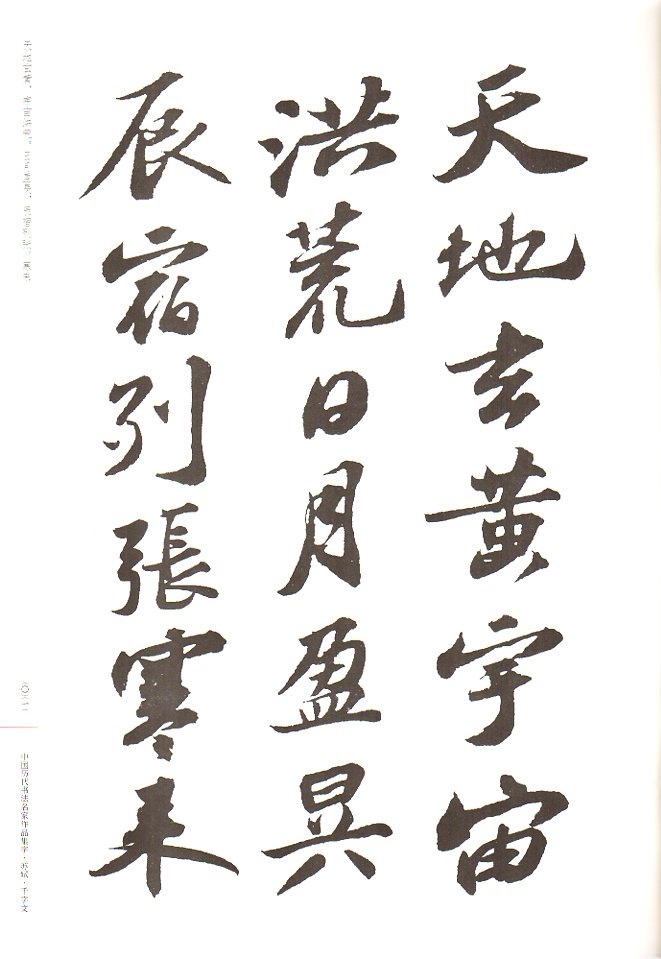 天地玄黄宇宙
洪荒日月盈昃
辰宿列張寒来
中国历代书法名家作品集字·苏轼·千字文